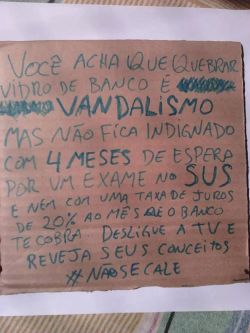 VOCÊ ACHA QUE QUEBRAR
VIDRO DE BANCO É
VANDALISMO
MAS NÃO FICA INDIGNADO
COM 4 MESES DE ESPERA
POR UM EXAME NO SUS
E NEM COM UMA TAXA DE JUROS
DE 20% AO MÊS QUE O BANCO
TE COBRA. DESLIGUE A TV E
REVEJA SEUS CONCEITOS
#NAOSECALE